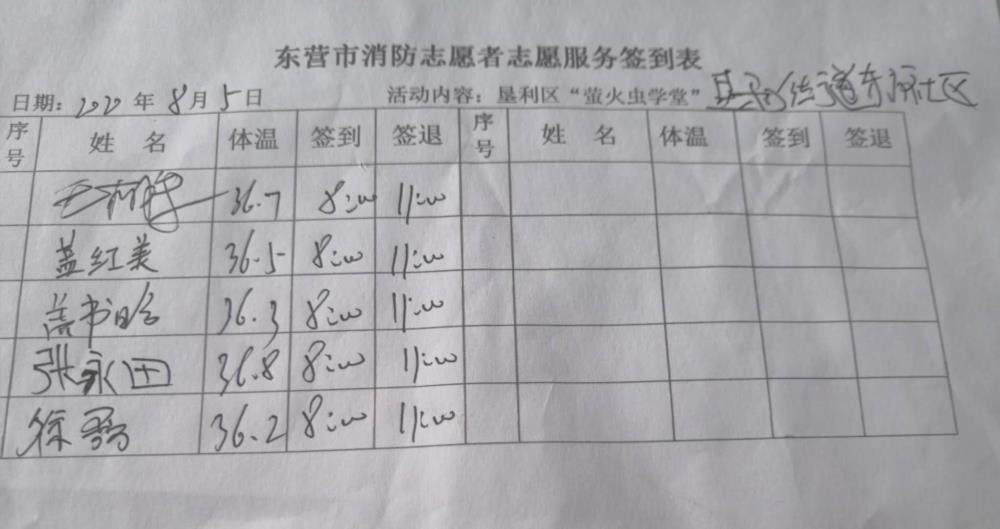 东营市消防志愿者志愿服务签到表
日期：2020年8月5日 活动内容：垦利区“萤火虫学堂” 垦利街道东源社区
序号 姓名 体温 签到 签退 序号 姓名 体温 签到 签退
36.7 8:00 11:00
盖红美 36.5 8:00 11:00
盖书晗 36.3 8:00 11:00
张永田 36.8 8:00 11:00
徐 36.2 8:00 11:00